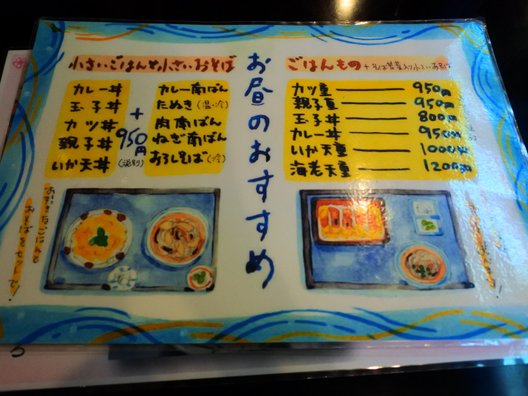 お昼のおすすめ
小さいごはんと小さいおそば
カレー丼
玉子丼
カツ丼
親子丼
いか天丼
+
950円
(税別)
カレー南ばん
たぬき(温・冷)
肉南ばん
ねぎ南ばん
おろしそば(冷)
ごはんもの
カツ重 950円
親子重 950円
玉子丼 800円
カレー丼 950円
いか天重 1000円
海老天重 1200円
おそばをセットで!